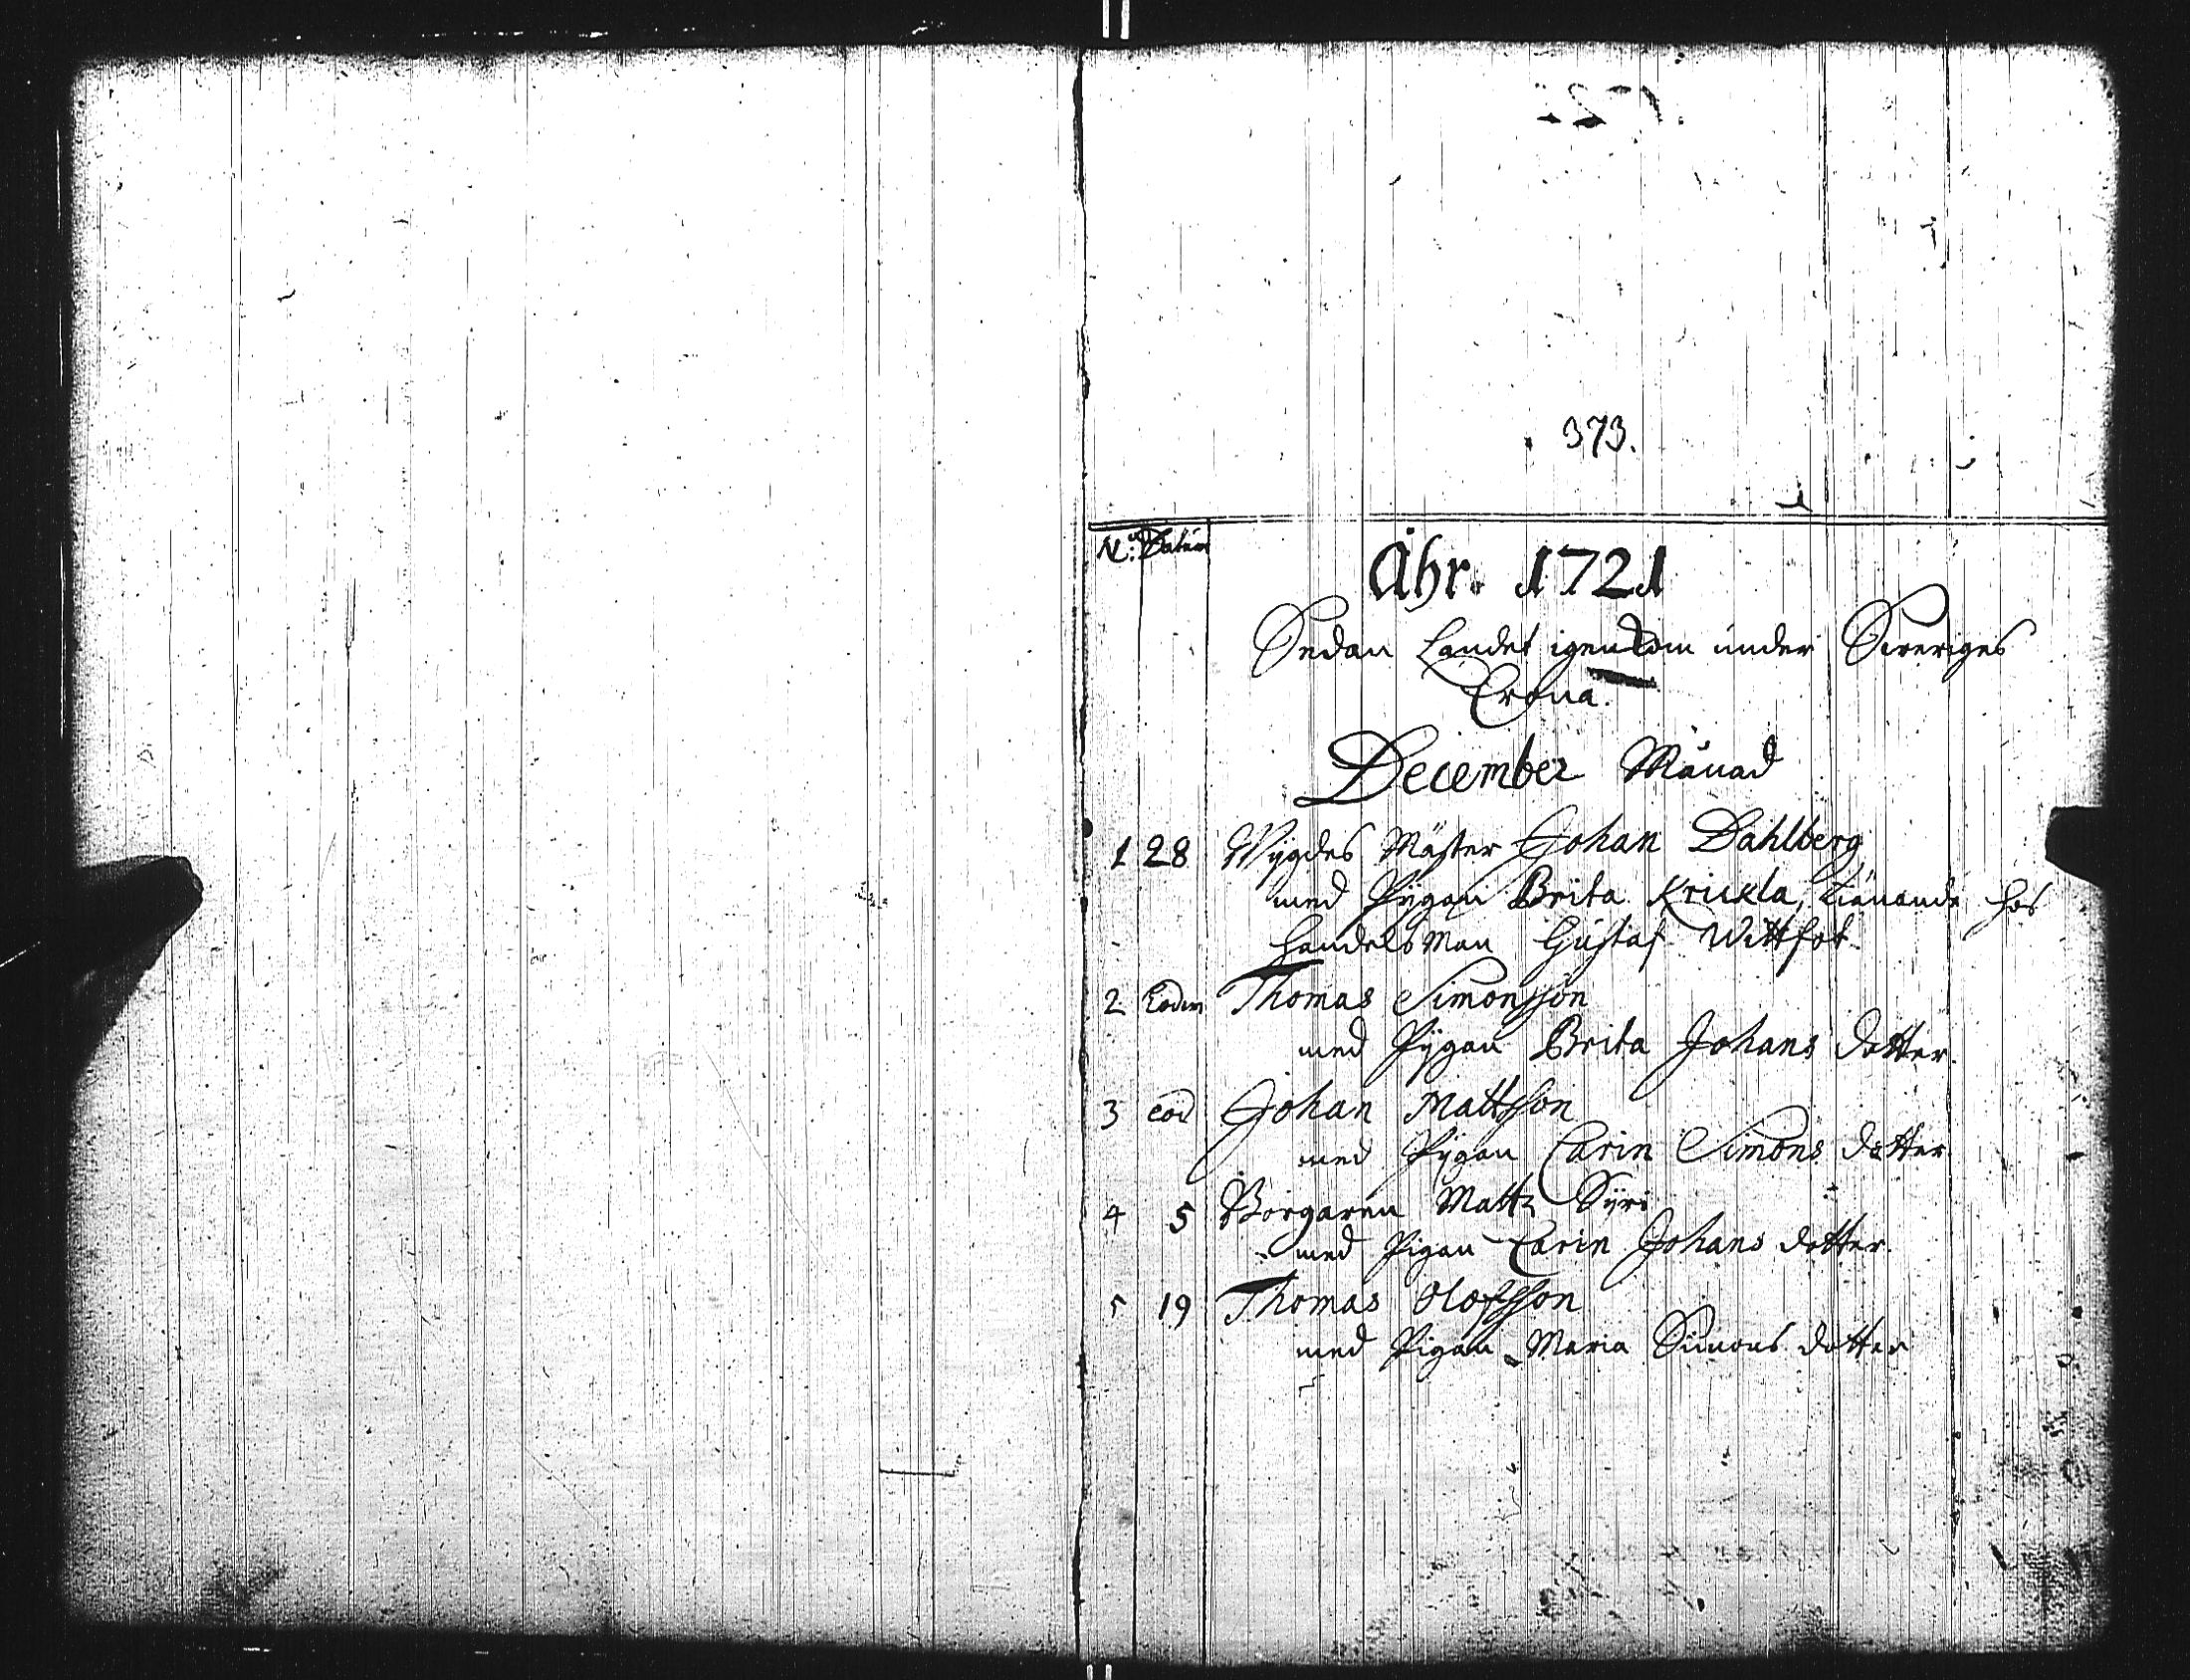 373.
N:o Datum
Åhr. 1721
Sedan Landet igenkom under Sweriges
Crona.
December Månad
1 28 Wygdes Mäster Johan Dahlberg
med Pygan Brita Kriukla, tiänande hos
handelsman Gustaf Wittfot.
2 Eodem Thomas Simonsson
med Pygan Brita Johans dotter.
3 eod Johan Mattsson
med Pygan Carin Simons dotter
4 5 Borgaren Matts Syri
med Pigan Carin Johans dotter.
5 19 Thomas Olofsson
med Pigan Maria Simons dotter